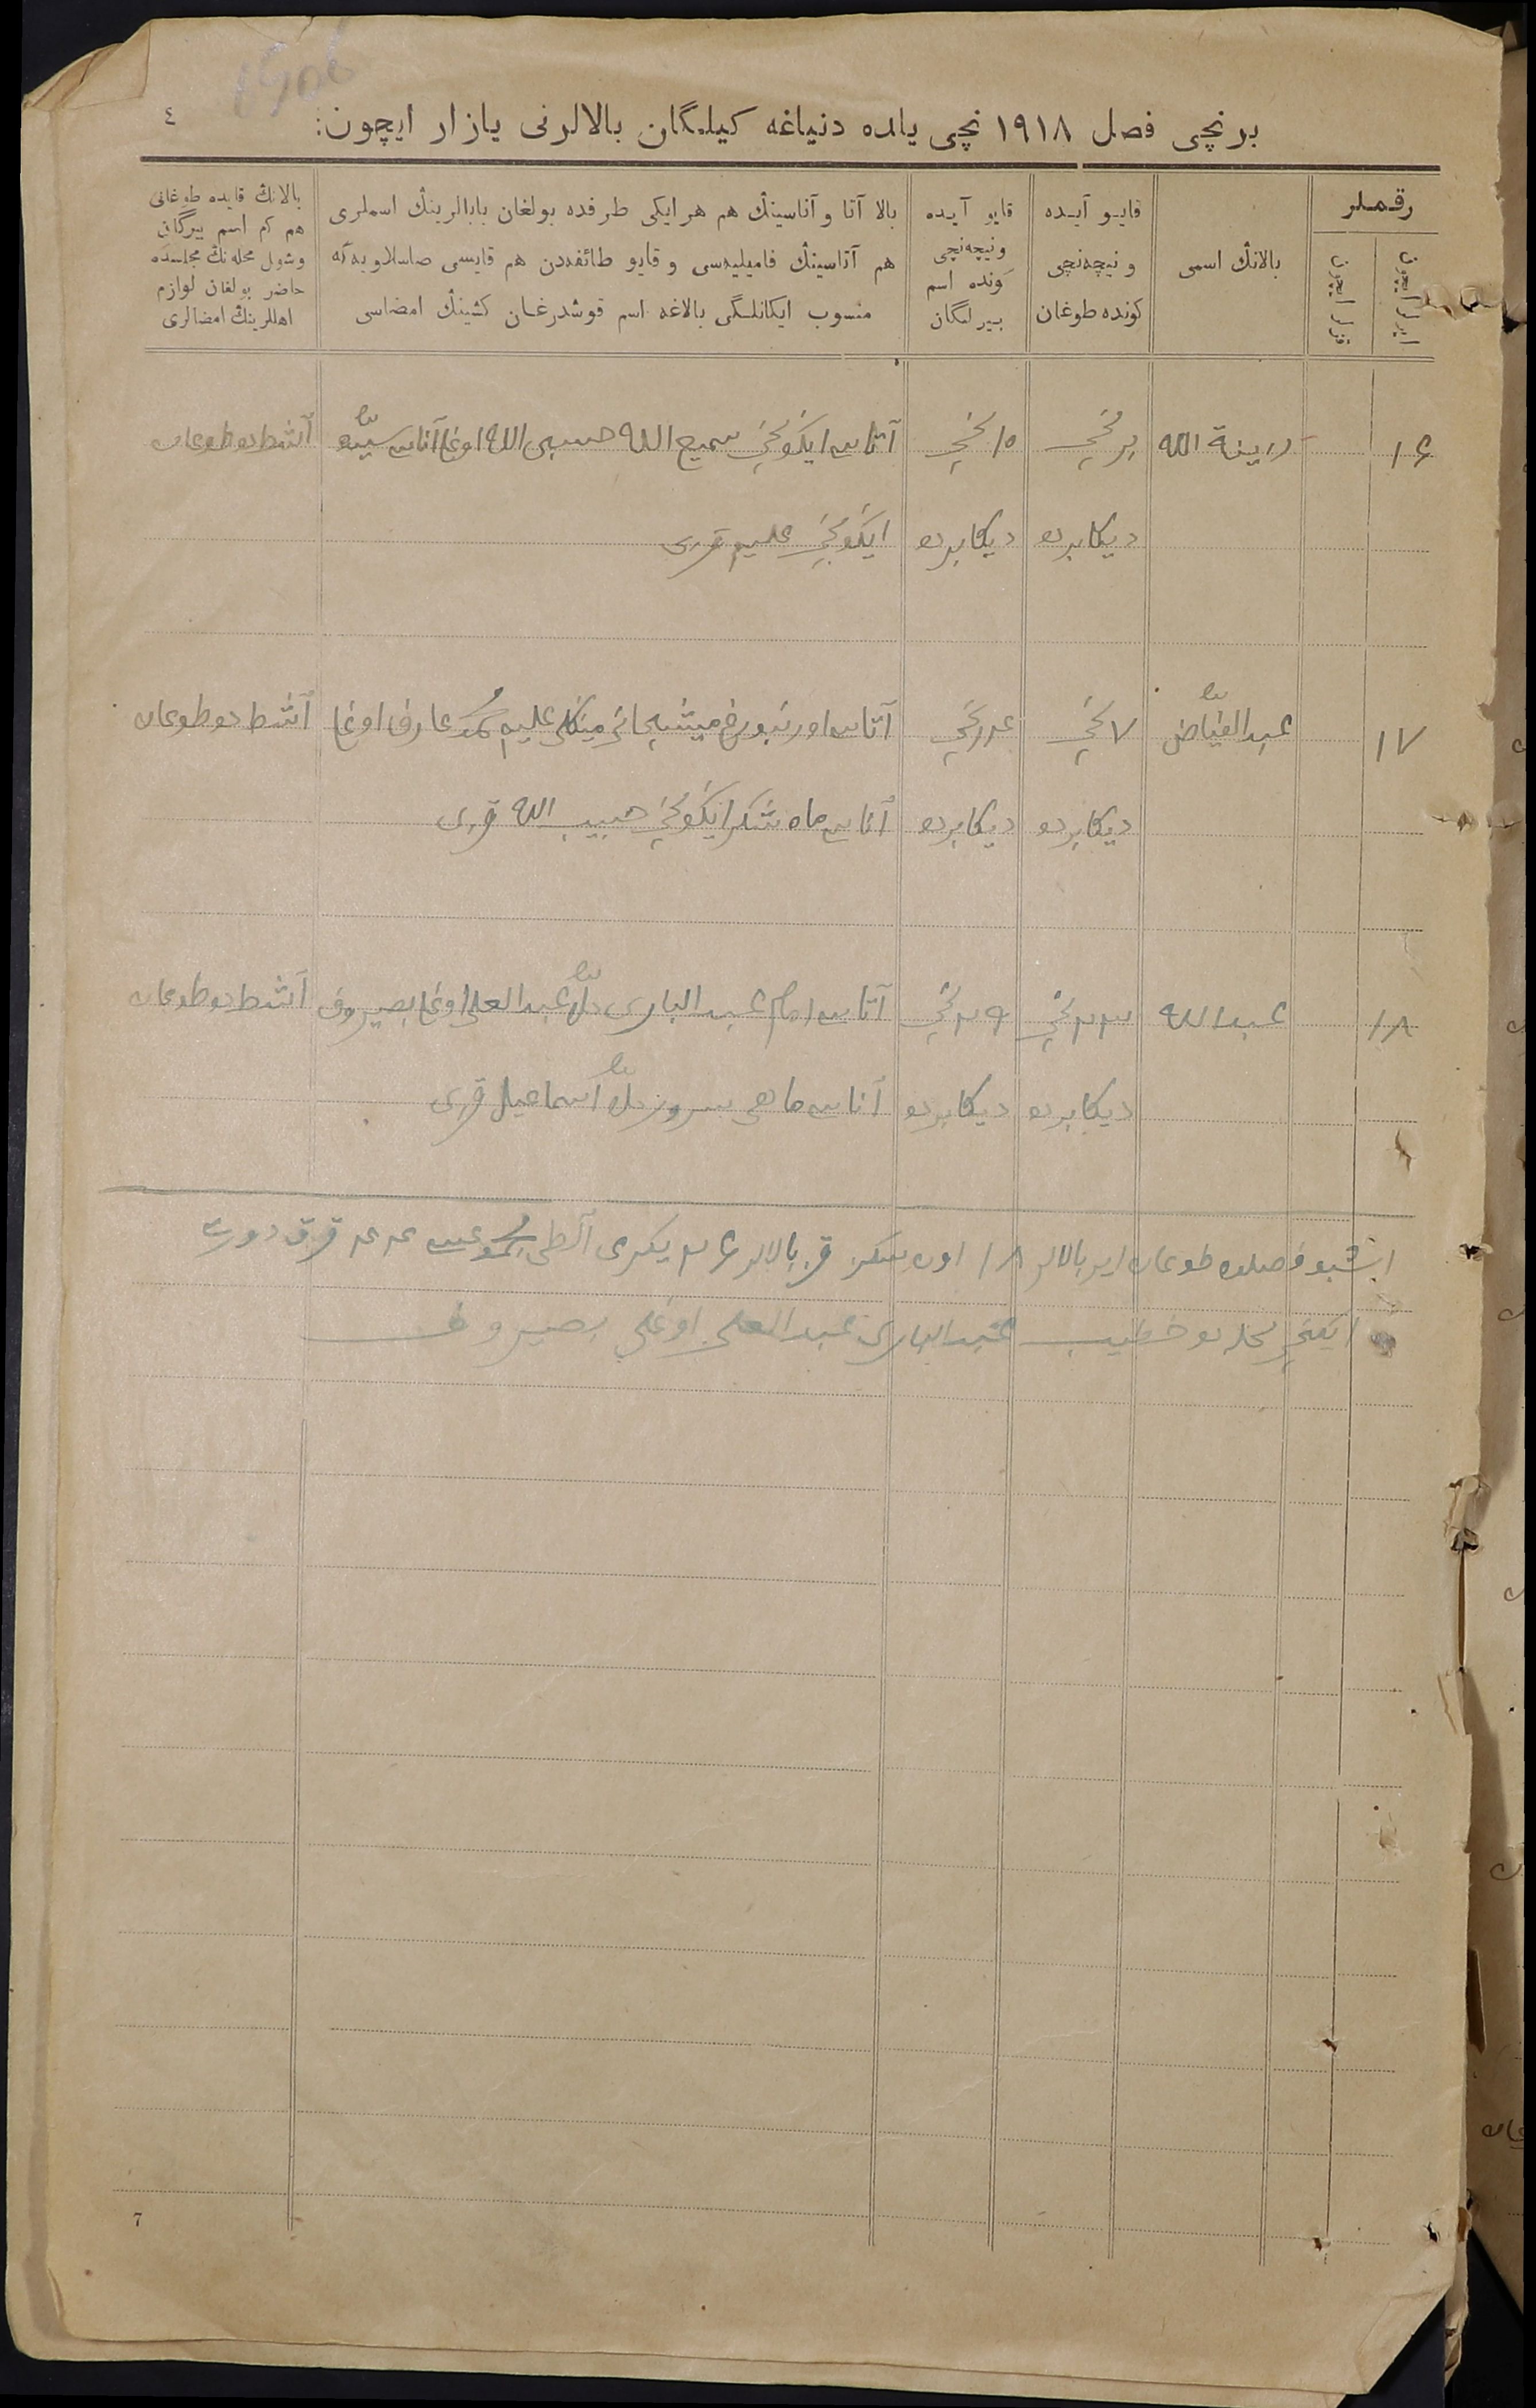 ٤
برنچی فصل ١٩١٨ نچی یلده دنیاغه کیلگان بالالرنی یازار ایچون:
رقملر
ایرلر ایچون
قزلر ایچون
بالانڭ اسمی
قایو آیده
و نیچه‌نچی
کونده طوغان
قایو آیده
و نیچه‌نچی
کونده اسم
بیرلگان
بالا آتا و آناسینڭ هم هر ایکی طرفده بولغان بابالرینڭ اسملری
هم آتاسینڭ فامیلیه‌سی و قایو طائفه‌دن هم قایسی صاسلاویه‌گه
منسوب ایکانلگی بالاغه اسم قوشدرغان کشینڭ امضاسی
بالانڭ قایده طوغانی
هم کم اسم بیرگان
وشول محله‌نڭ مجلسنده
حاضر بولغان لوازم
اهللرینڭ امضالری
١٦
زینة الله
برنچی
١٥ نچی
آتاسی ایکونچی سمیع الله حسیبی الله اوغلی آناسی
دیکابرده
دیکابرده
ایکونچی علیم قزی
١٧
عبد الفیاض
٧ نچی
نچی
آتاسی اورنبورغ میشچانی مینکلی علیم محمد عارف اوغلی
دیکابرده
دیکابرده
آناسی ماه شکر ایکونچی حبیب الله قزی
١٨
عبدالله
٢٣ نچی
٢٩ نچی
آتاسی امام عبد الباری ملا عبد العلی اوغلی بصیروف
دیکابرده
دیکابرده
آناسی ماهی سرور ملا اسماعیل قزی
اشبو فصلده طوغان ایر بالالر ١٨ اون سکز قز بالالر ٢٦ یکرمی آلطی مجموعیسی ٤٤ قرق دورت
ایکنچی محله ده خطیب عبد الباری عبد العلی اوغلی بصیروف
7